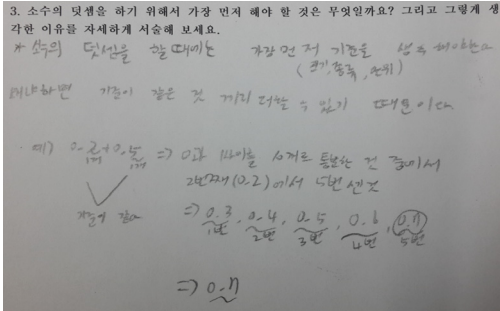 3. 소수의 덧셈을 하기 위해서 가장 먼저 해야 할 것은 무엇일까요? 그리고 그렇게 생
각한 이유를 자세하게 서술해 보세요.
* 소수의 덧셈을 할 때에는 가장 먼저 기준을 생각해야한다
(크기, 종류, 단위)
왜냐하면 기준이 같은 것 끼리 더할 수 있기 때문이다
예) 0.2+0.5 => 0과 1사이를 10개로 통분한 건 중에서
2번째(0.2)에서 5번 센것
기준이 같다
=> 0.3, 0.4, 0.5, 0.6, 0.7
1번 2번 3번 4번 5번
=> 0.7